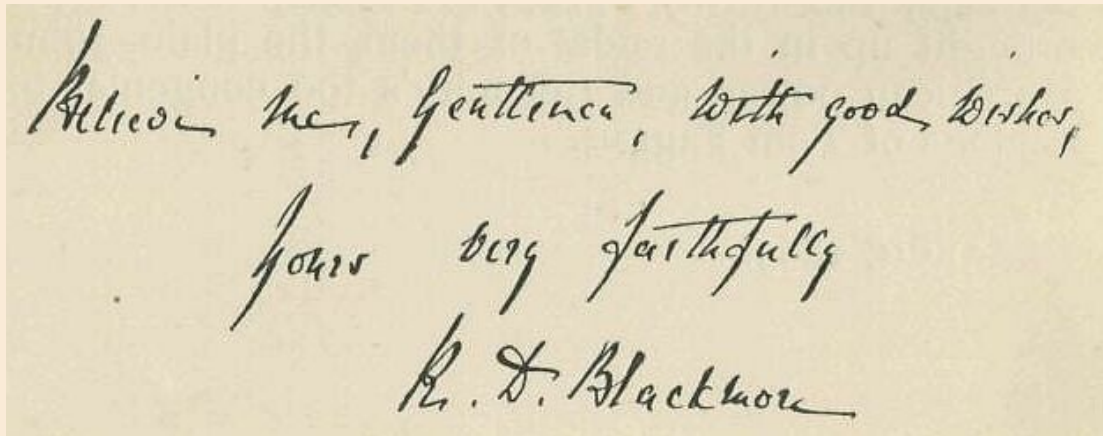 Believe me, Gentlemen, with good wishes,
Yours very faithfully
R. D. Blackmore